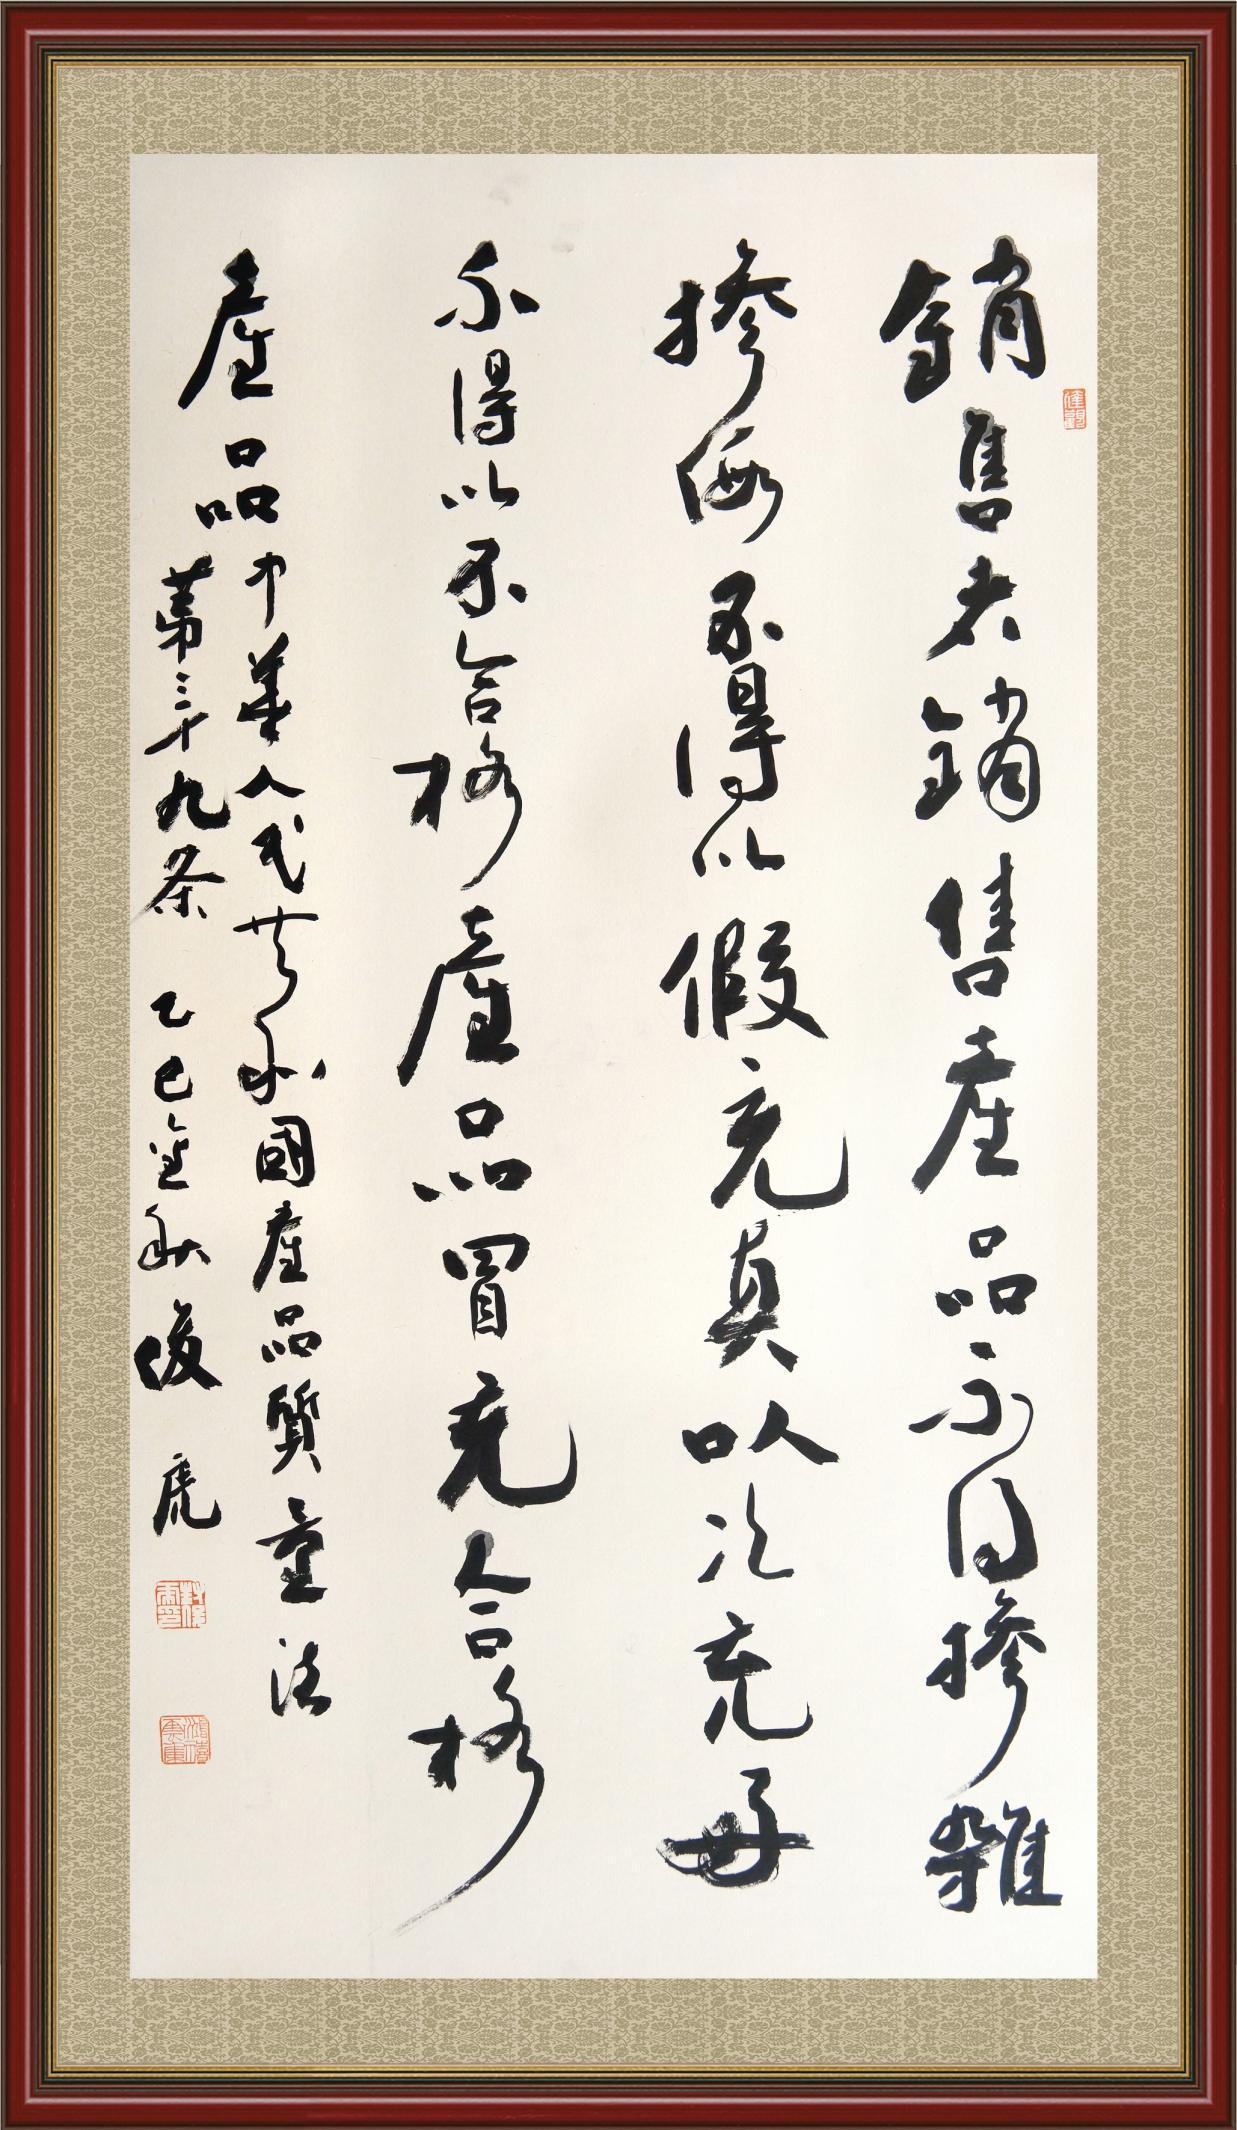 銷售者銷售產品不得摻雜
摻假不得以假充真以次充好
不得以不合格產品冒充合格
產品
中華人民共和國產品質量法
第三十九条 乙巳金秋 俊虎